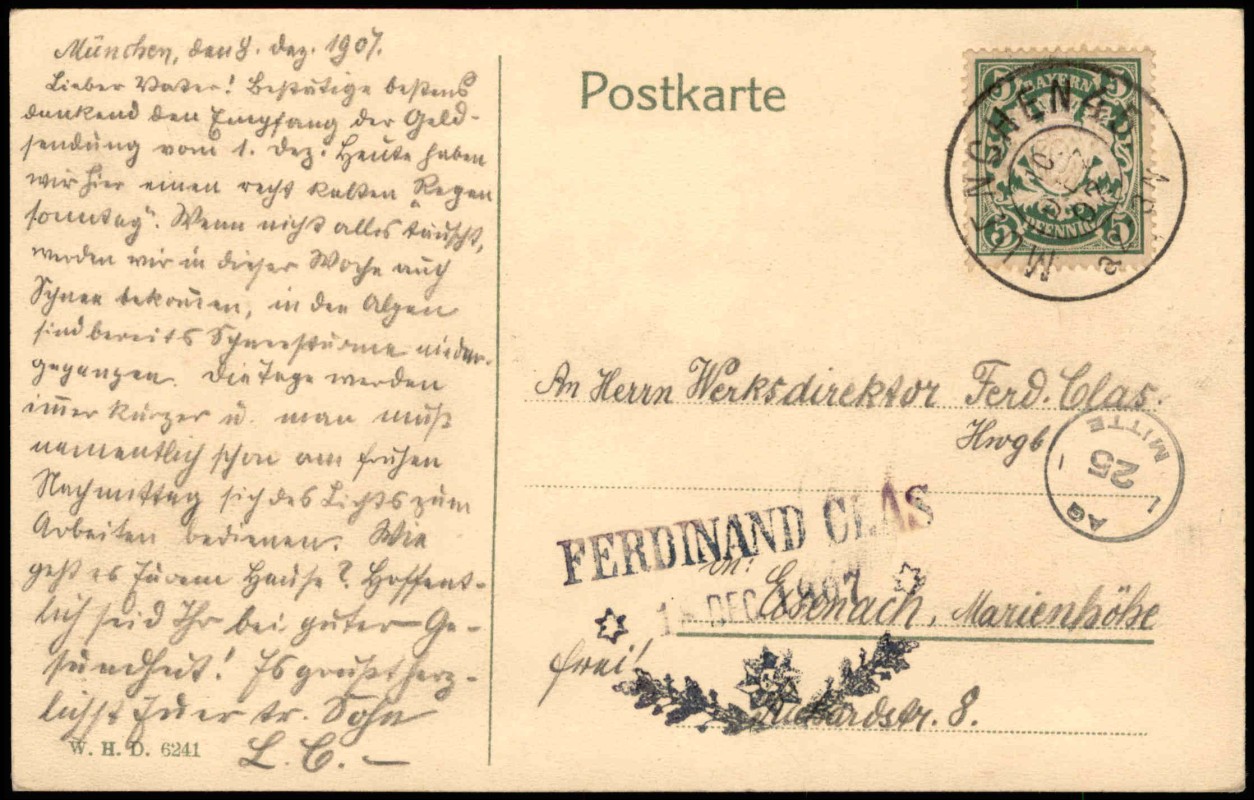 München, den 8. Dez. 1907.
Lieber Vater! Bestätige bestens
dankend den Empfang der Geld-
sendung vom 1. Dez. Heute haben
wir hier einen recht kalten „Regen
sonntag". Wenn nicht alles täuscht,
werden wir in dieser Woche auch
Schnee bekom̅en, in den Alpen
sind bereits Schneestürme nieder-
gegangen. Die Tage werden
im̅er kürzer u. man muß
namentlich schon am frühen
Nachmittag sich des Lichts zum
Arbeiten bedienen. Wie
geht es zu Hause? Hoffent-
lich seid Ihr bei guter Ge-
sundheit! Es grüßt herz-
lichst Euer tr. Sohn
L. C. —
W. H. D. 6241
Postkarte
BAYERN
5 5
PFENNIG
MÜNCHEN 45
An Herrn Werksdirektor Ferd. Clas.
Hwgb
MITTE
25
AG
FERDINAND CLAS
in: Eisenach, Marienhöhe
DEC. 1907
frei!
8.